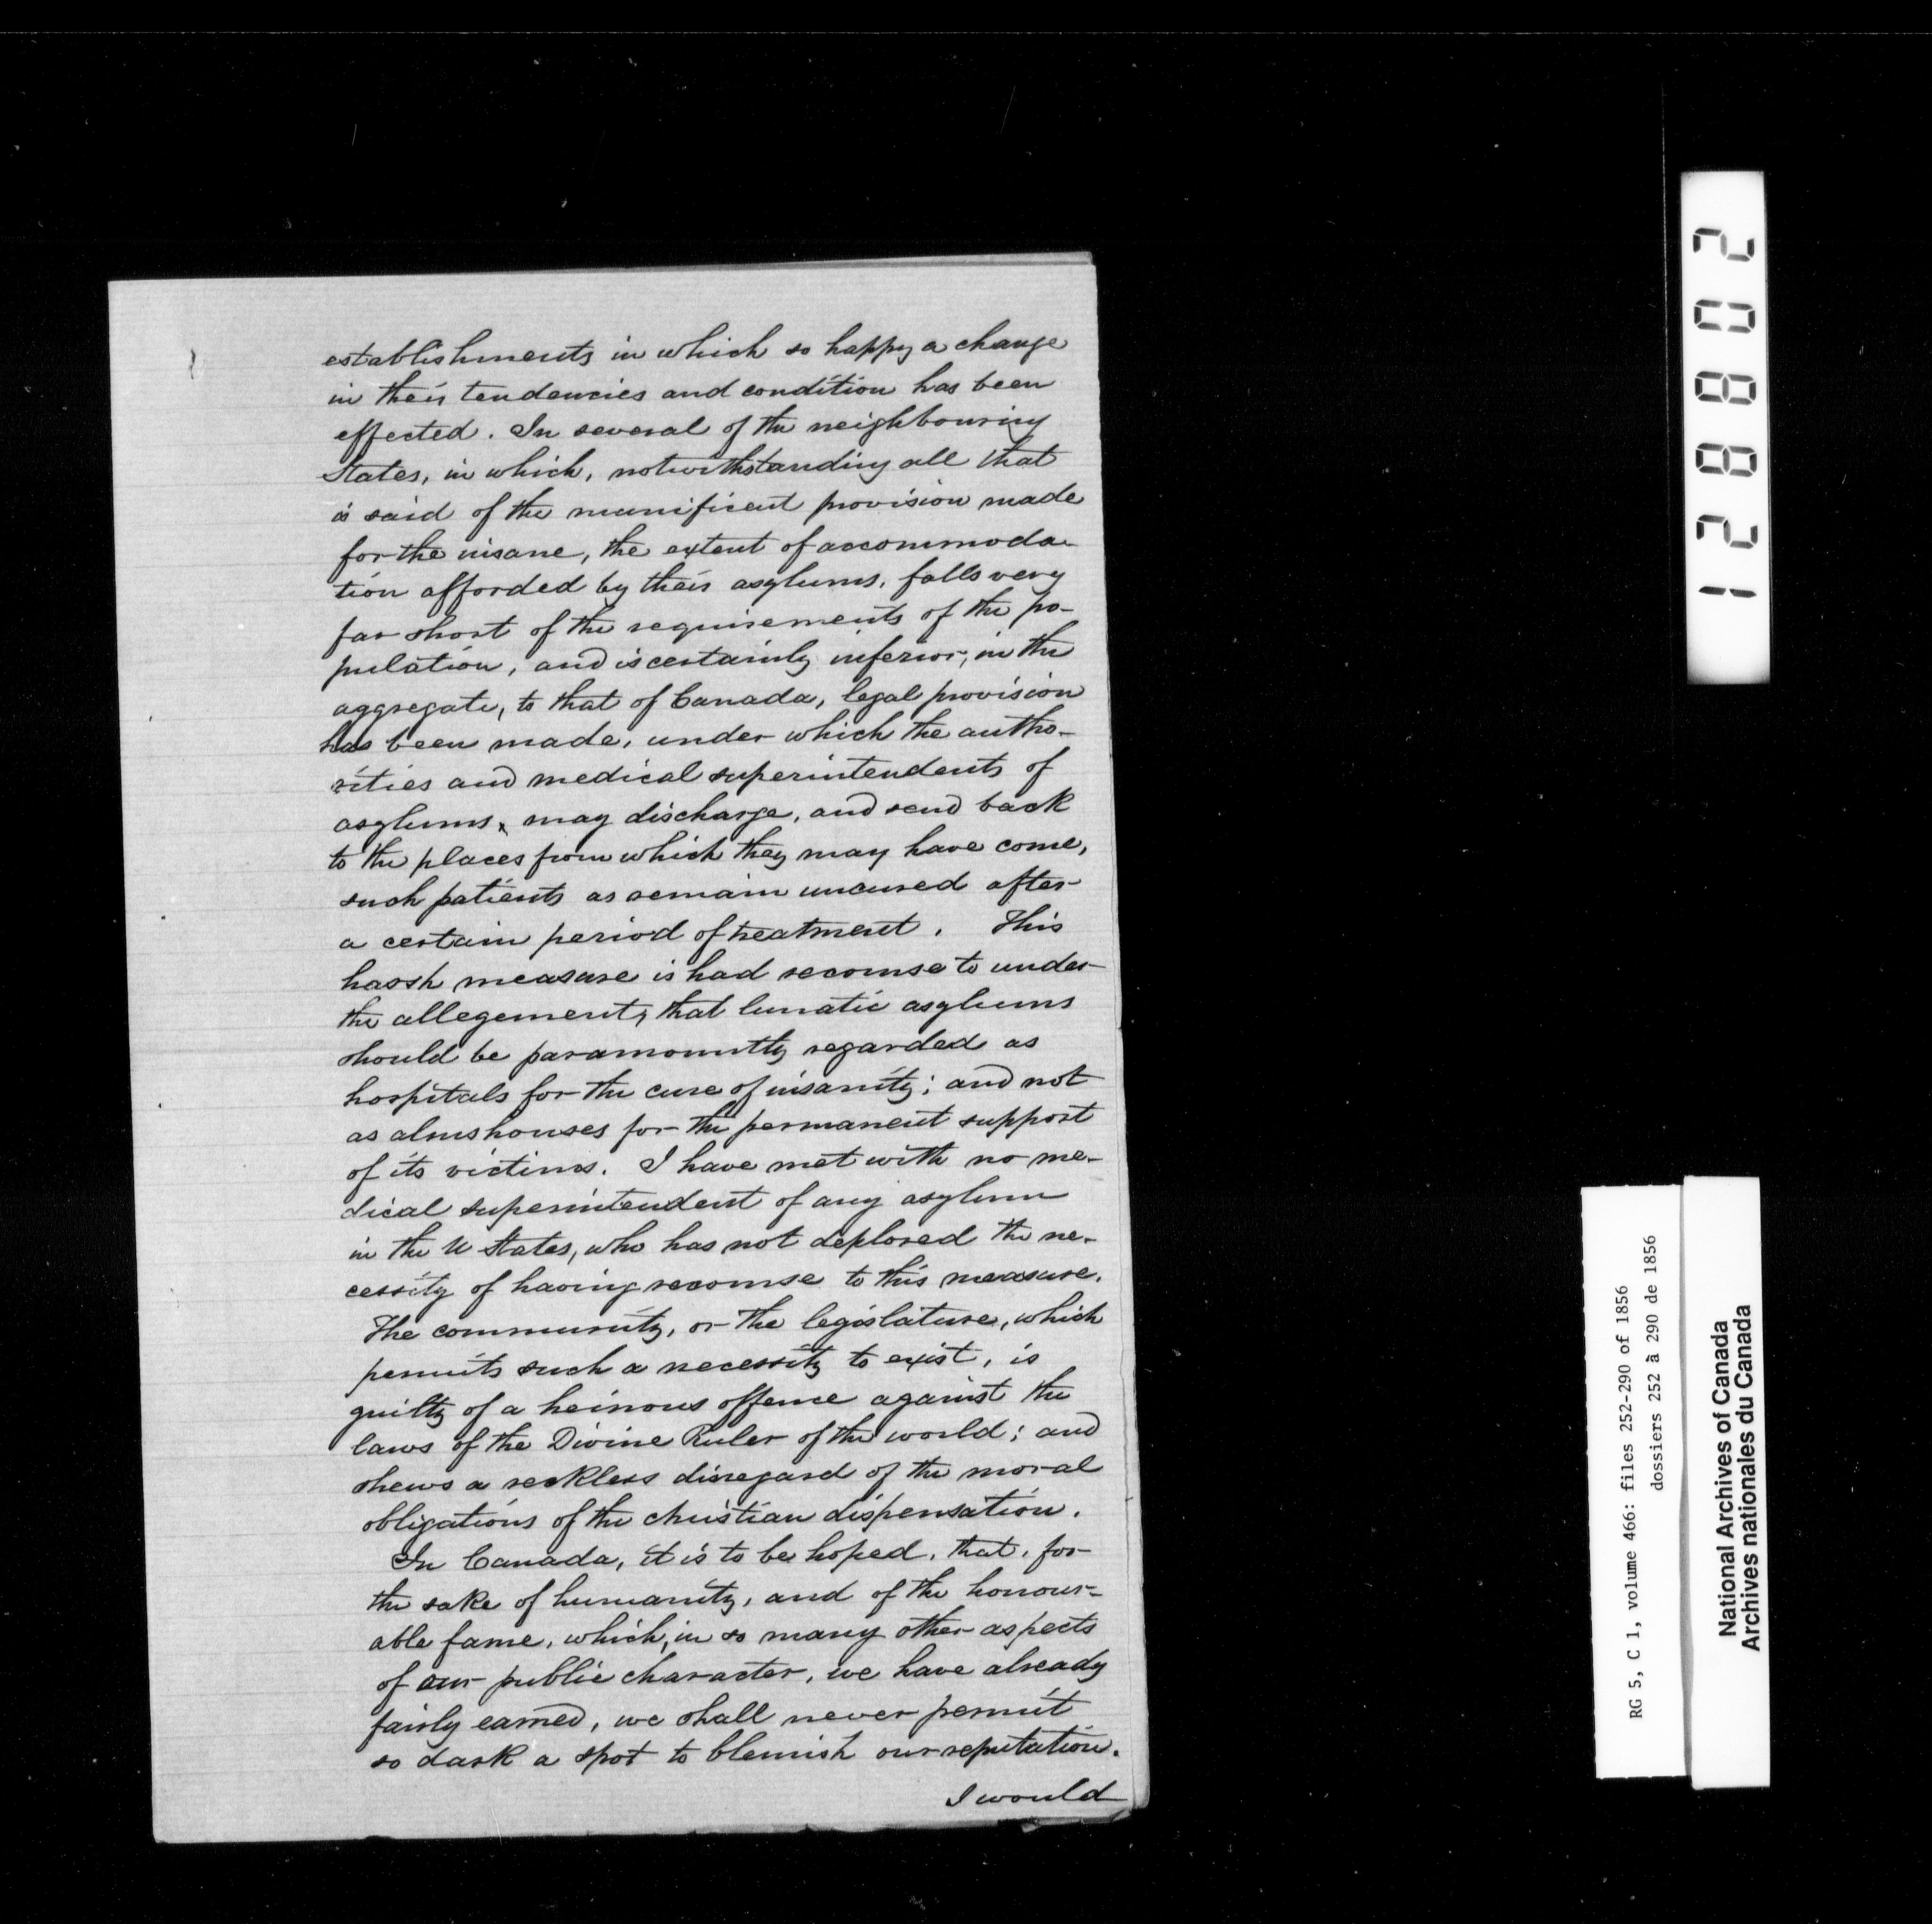 establishments in which so happy a change
in their tendencies and condition has been
effected. In several of the neighbouring
States, in which, notwithstanding all that
is said of the munificent provision made
for the insane, the extent of accommoda-
tion afforded by their asylums, falls very
far short of the requirements of the po-
pulation, and is certainly inferior, in the
aggregate, to that of Canada, legal provision
has been made, under which the autho-
rities and medical superintendents of
asylums, may discharge, and send back
to the places from which they may have come,
such patients as remain uncured after
a certain period of treatment. This
harsh measure is had recourse to under
the allegement, that lunatic asylums
should be paramountly regarded as
hospitals for the cure of insanity; and not
as almshouses for the permanent support
of its victims. I have met with no me-
dical superintendent of any asylum
in the U States, who has not deplored the ne-
cessity of having recourse to this measure.
The community, or the legislature, which
permits such a necessity to exist, is
guilty of a heinous offence against the
laws of the Divine Ruler of the world; and
shews a reckless disregard of the moral
obligations of the christian dispensation.
In Canada, it is to be hoped, that, for
the sake of humanity, and of the honour-
able fame, which, in so many other aspects
of our public character, we have already
fairly earned, we shall never permit
so dark a spot to blemish our reputation.
I would
128802
RG 5, C 1, volume 466: files 252-290 of 1856
dossiers 252 à 290 de 1856
National Archives of Canada
Archives nationales du Canada